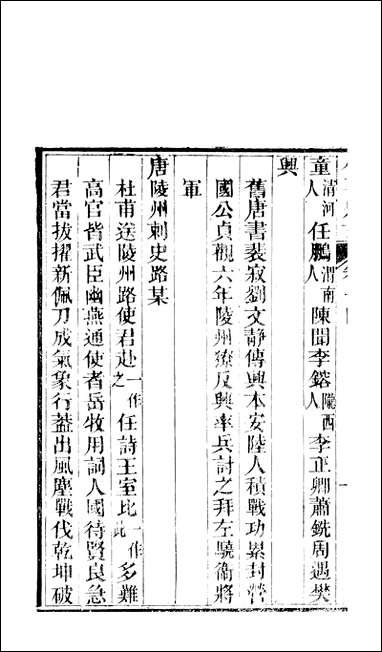 童清河人任鵬渭南人陳聞李鎔隴西人李正卿蕭銑周遇樊
興
舊唐書裴寂劉文靜傳興本安陸人積戰功累封營
國公貞觀六年陵州獠反興率兵討之拜左驍衛將
軍
唐陵州刺史路某
杜甫送陵州路使君赴一作之任詩王室比一作此多難
高官皆武臣幽燕通使者岳牧用詞人國待賢良急
君當拔擢新佩刀成氣象行蓋出風塵戰伐乾坤破